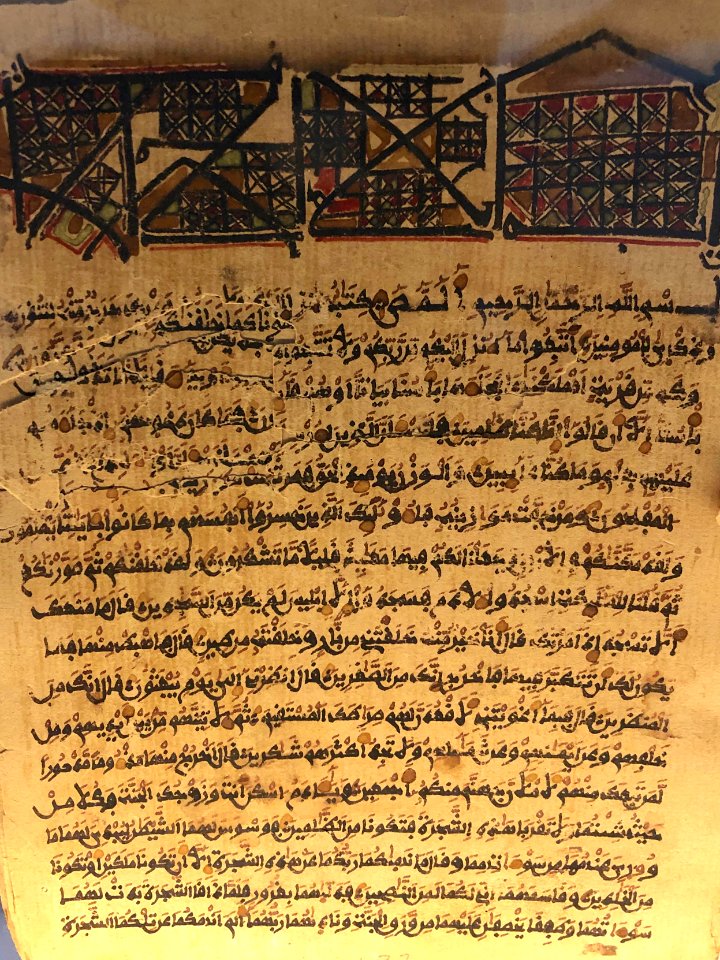 سم الله الرحمن الرحيم المص كتب انزل اليك
وذكرى للمومنين اتبعوا ما انزل اليكم من ربكم ولا تتبعوا
وكم من قرية اهلكنها فجاءها باسنا بيتا او هم
باسنا الا ان قالوا انا كنا ظلمين فلنسئلن الذين
عليهم بعلم وما كنا غايبين والوزن يومئذ الحق فمن
المفلحون ومن خفت موزينه فاولئك الذين خسروا انفسهم بما كانوا بايتنا يظلمون
ولقد مكنكم في الارض وجعلنا لكم فيها معيش قليلا ما تشكرون ولقد خلقنكم ثم صورنكم
ثم قلنا للملئكة اسجدوا لادم فسجدوا الا ابليس لم يكن من السجدين قال ما منعك
الا تسجد اذ امرتك قال انا خير منه خلقتني من نار وخلقته من طين قال فاهبط منها فما
يكون لك ان تتكبر فيها فاخرج انك من الصغرين قال انظرني الى يوم يبعثون قال انك من
المنظرين قال فبما اغويتني لاقعدن لهم صرطك المستقيم ثم لاتينهم من بين ايديهم ومن
خلفهم وعن ايمنهم وعن شمايلهم ولا تجد اكثرهم شكرين قال اخرج منها مذءوما مدحورا
لمن تبعك منهم لاملان جهنم منكم اجمعين ويادم اسكن انت وزوجك الجنة فكلا من
حيث شيتما ولا تقربا هذه الشجرة فتكونا من الظلمين فوسوس لهما الشيطن ليبدي لهما ما
ووري عنهما من سوءتهما وقال ما نهيكما ربكما عن هذه الشجرة الا ان تكونا ملكين او تكونا
من الخلدين وقاسمهما اني لكما لمن النصحين فدليهما بغرور فلما ذاقا الشجرة بدت لهما
سوءتهما وطفقا يخصفن عليهما من ورق الجنة وناديهما ربهما الم انهكما عن تلكما الشجرة